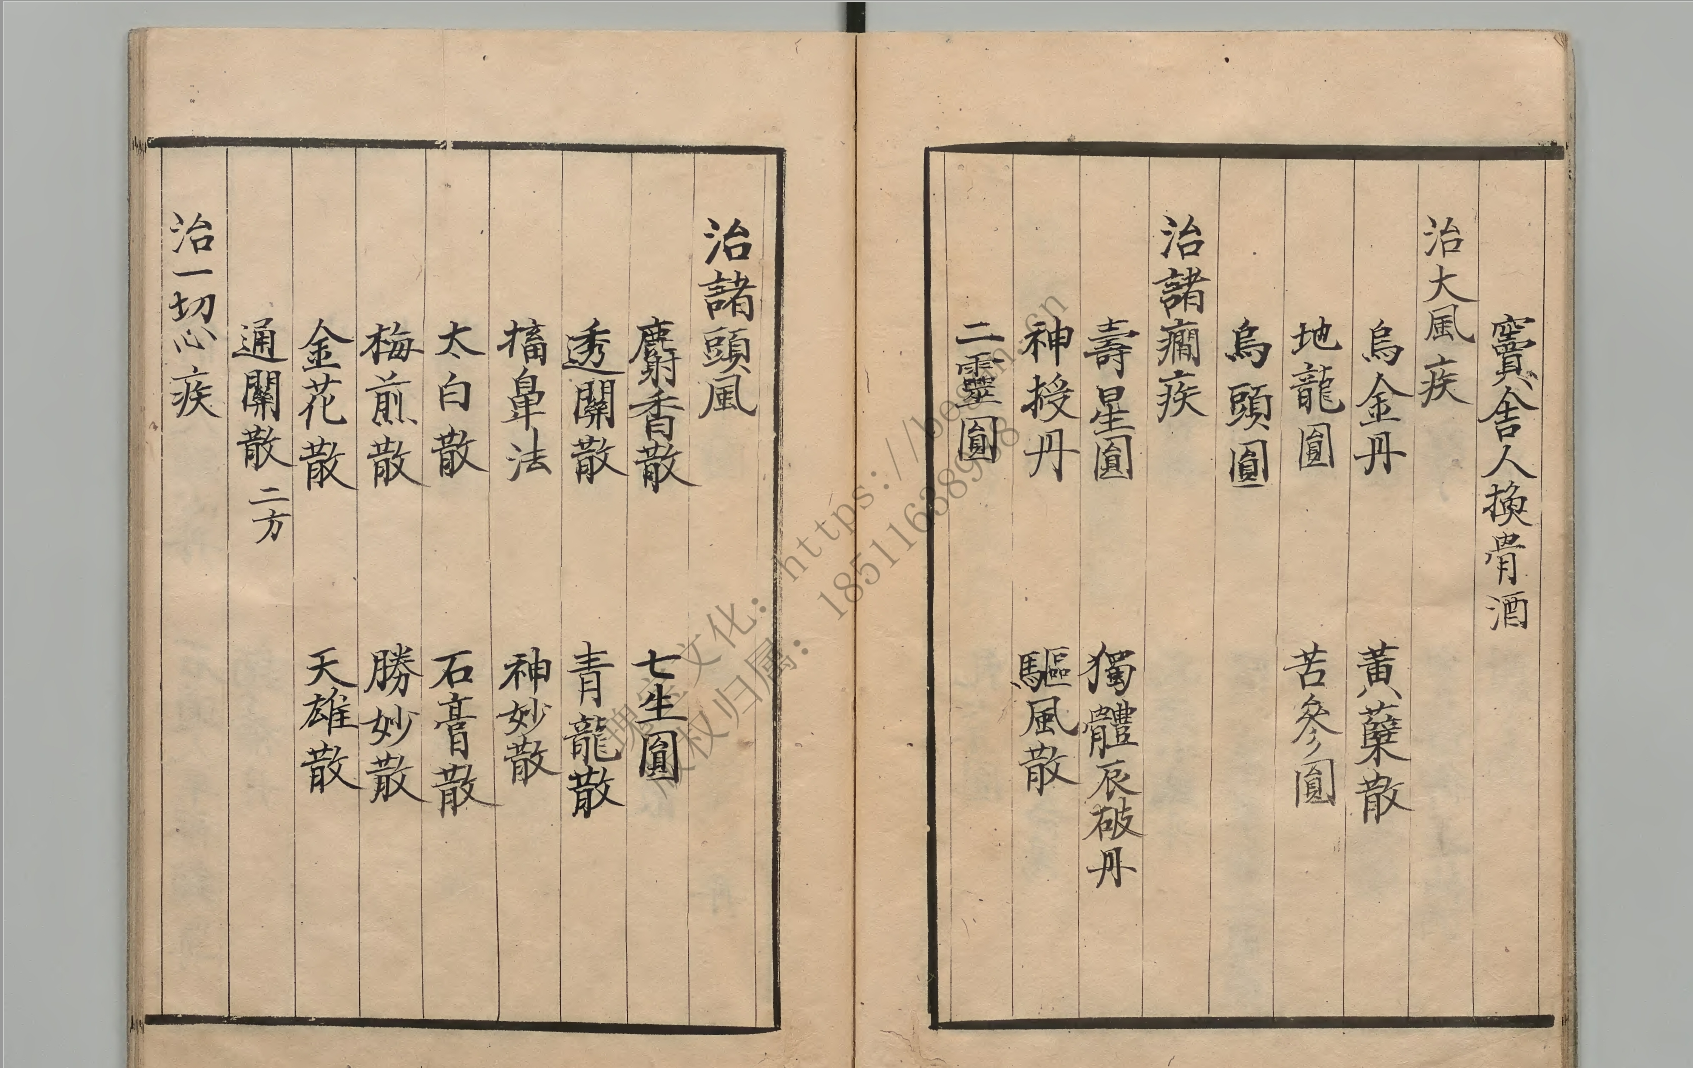 竇舍人換骨酒
治大風疾
烏金丹　黃蘗散
地龍圓　苦參圓
烏頭圓
治諸癇疾
壽星圓　獨體辰砂丹
神授丹　驅風散
二靈圓
治諸頭風
麝香散　七生圓
透關散　青龍散
搐鼻法　神妙散
太白散　石膏散
梅煎散　勝妙散
金花散　天雄散
通關散二方
治一切心疾
文化：https://
权归属：18511638988